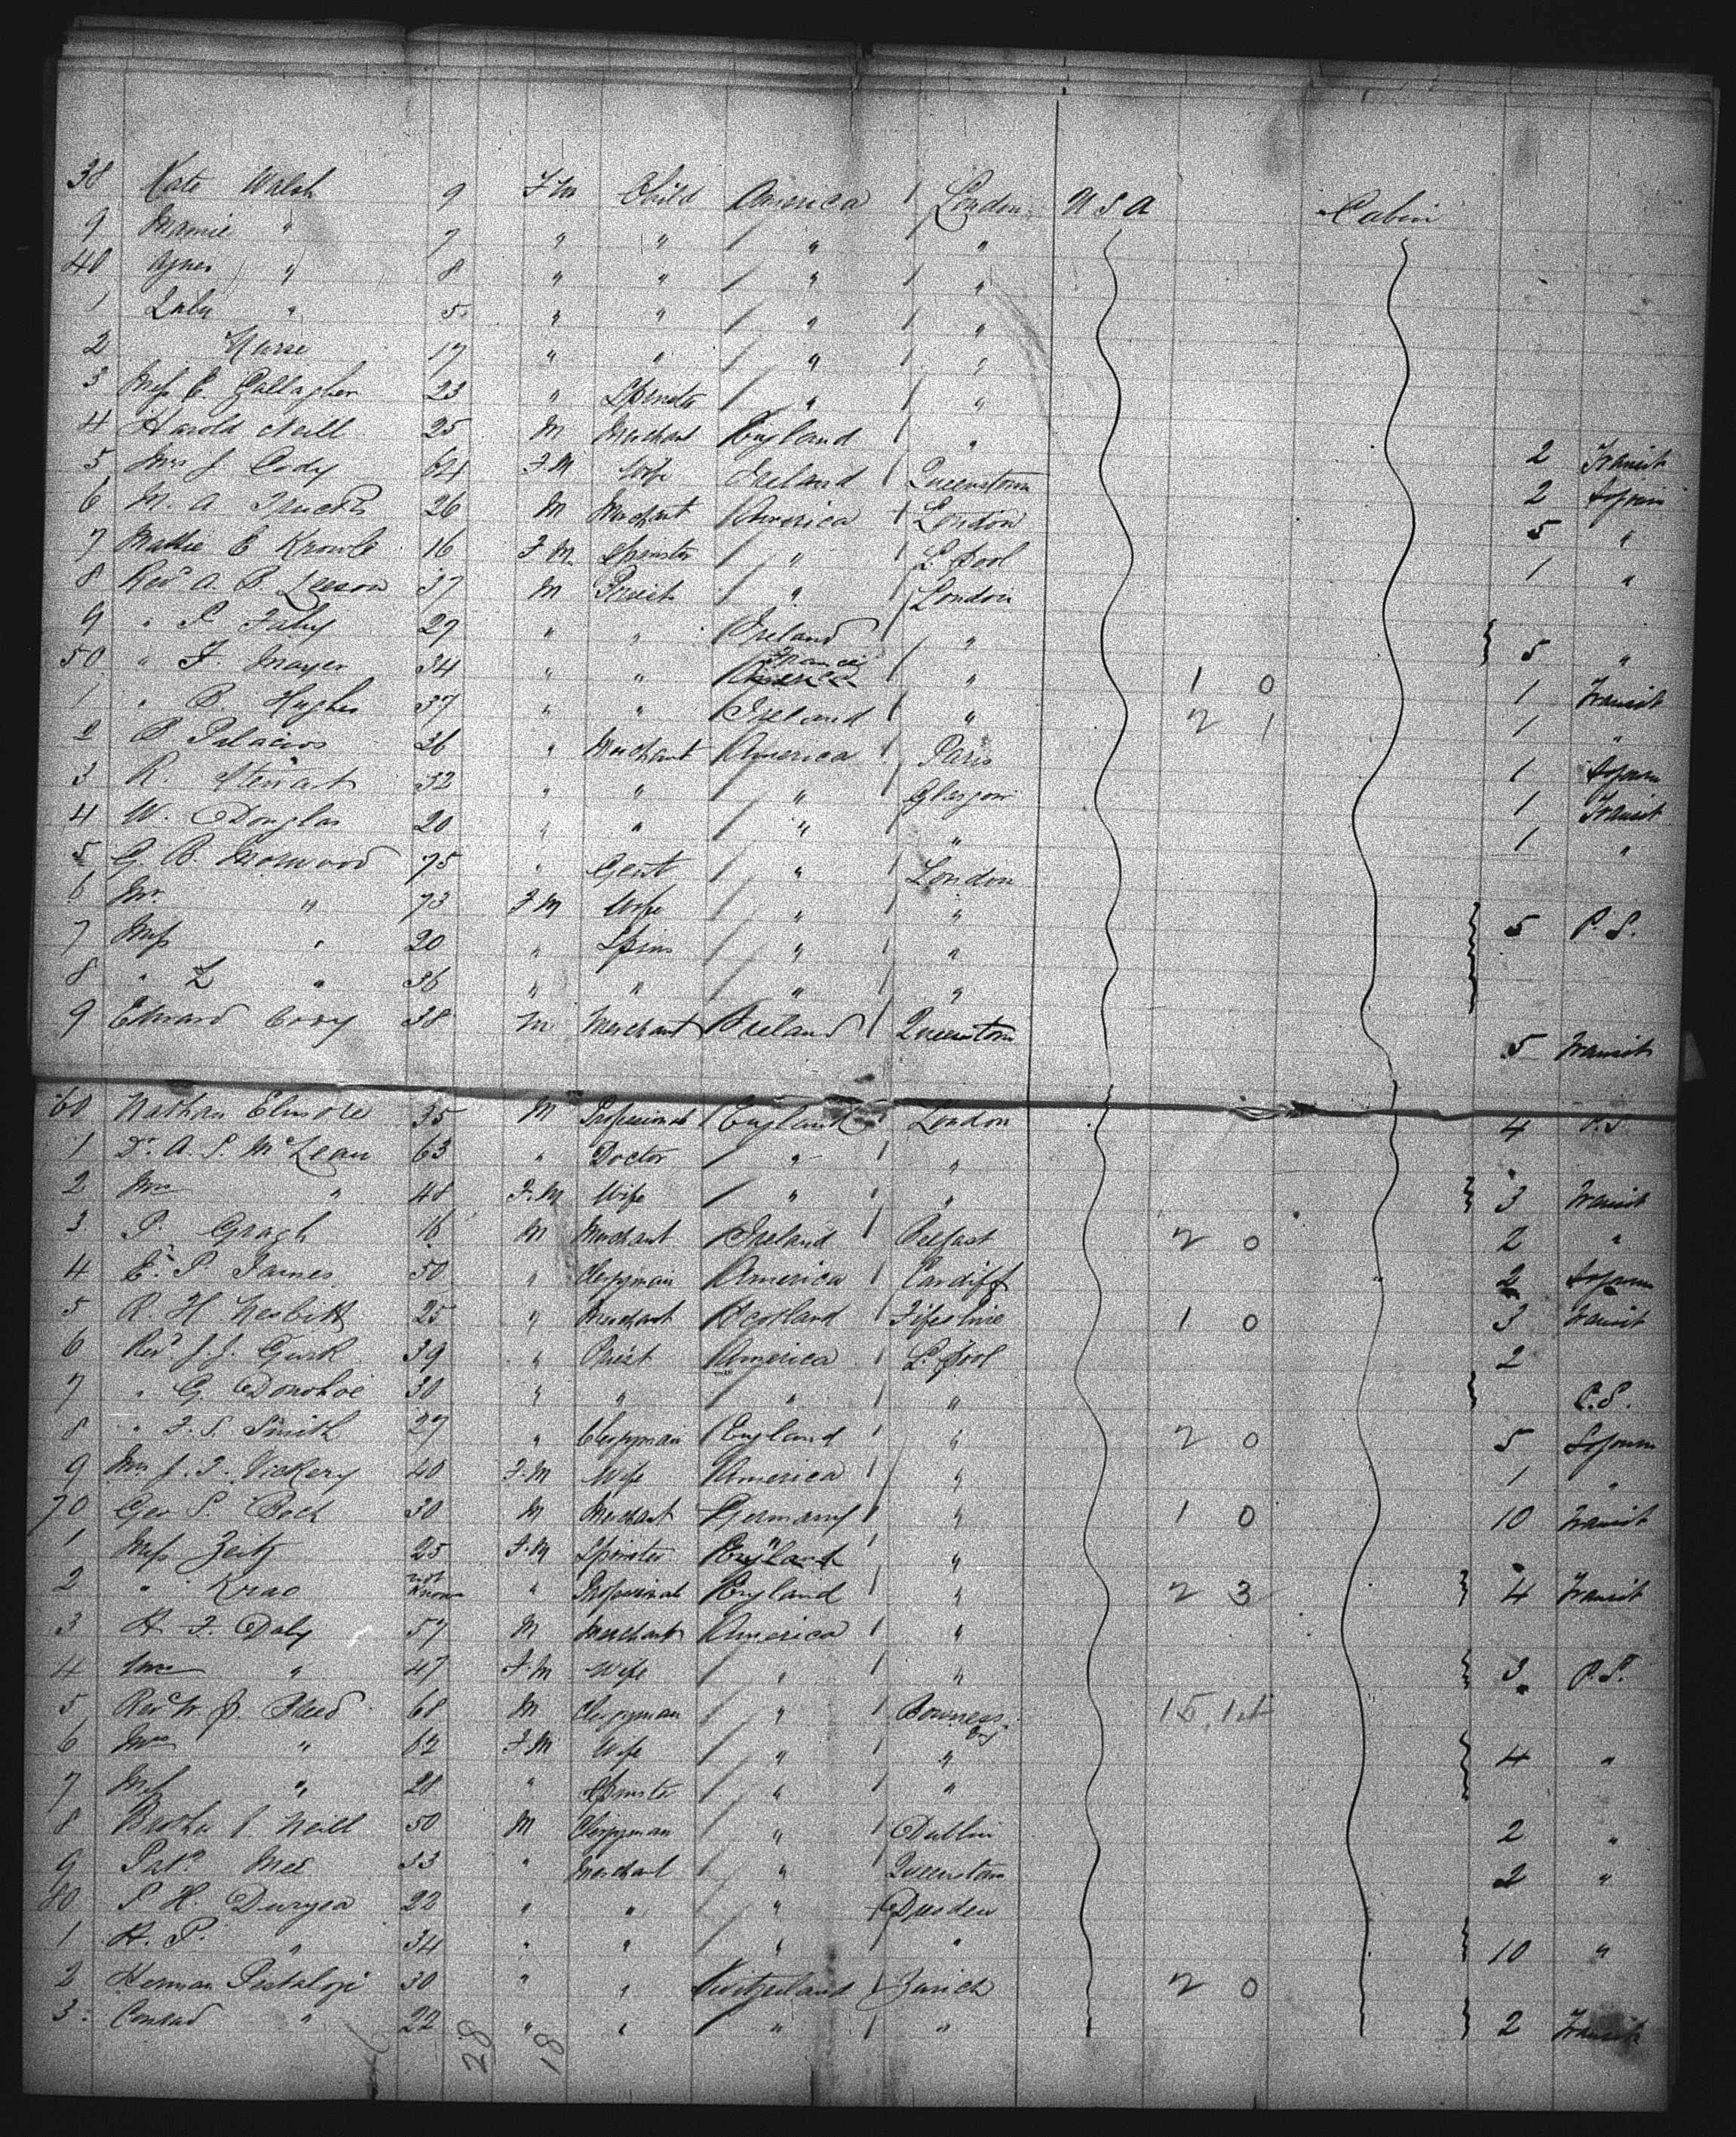 38 Kate Walsh 9 F M Child America London U S A Cabin
9 Mamie " 7 " " " "
40 Agnes " 8 " " " "
1 " 5 " " " "
2 Nurse 17 " " " "
3 Miss E. Gallagher 23 " Spinster " "
4 Harold Neill 25 M Merchant England " 2 Transit
5 Mrs J. Cody 64 F M Wife Ireland Queenstown 2 Sojourn
6 M. A. 26 M Merchant America London 5 "
7 Mattie E 16 F M Spinster " L. pool 1 "
8 Revd A. B. Leeson 37 M Priest " London
9 " P Fahy 27 " " Ireland " 5 "
50 " F. Mayer 34 " " France America " 1 0 1 Transit
1 " B. Hughes 37 " " Ireland " 2 1 1 "
2 B. Palacios 26 " Merchant America Paris 1 Sojourn
3 R. Stewart 32 " " " Glasgow 1 Transit
4 W. Douglas 20 " " " " 1 "
5 G. B. Norwood 75 " Gent " London
6 Mrs " 73 F M Wife " " 5 P. S.
7 Miss " 20 " Spins " "
8 " L " 36 " " " "
9 Edward Cody 38 M Merchant Ireland Queenstown 5 Transit
60 Nathan Elmore 35 M Professional England London 4 P.S.
1 Dr. A. S. McLean 63 " Doctor " "
2 Mrs " 48 F. M Wife " " 3 Transit
3 P. Gragh 16 M Merchant Ireland Belfast 2 0 2 "
4 E. P. James 50 " Clergyman America Cardiff 2 Sojourn
5 R. H. Nesbitt 25 " Merchant Scotland Fifeshire 1 0 3 Transit
6 Revd J. J. Gurk 39 " Priest America L. pool 2
7 " G. Donohoe 30 " " " " P. S.
8 " F. S. Smith 27 " Clergyman England " 2 0 5 Sojourn
9 Mrs J. T. Vickery 40 F. M Wife America " 1 "
70 Geo S. Boch 30 M Merchant Germany " 1 0 10 Transit
1 Miss Zeitz 25 F. M Spinster England "
2 " Krao not known " Professional England " 2 3 4 Transit
3 H. F. Daly 57 M Merchant America "
4 Mrs " 47 F. M Wife " " 3 P. S.
5 Revd W. J. Skeed 68 M Clergyman " Bowness
6 Mrs " 62 F M Wife " " 4 "
7 Miss " 28 " Spinster " "
8 Brother J. Neill 50 M Clergyman " Dublin 2 "
9 Patk Mee 33 " Merchant " Queenstown 2 "
80 S H. Duryea 22 " " " Dresden
1 H. P. " 34 " " " " 10 "
2 Herman Pestalozi 30 " " Switzerland Zurich 2 0
3 Conrad " 22 " " " " 2 Transit
28 18